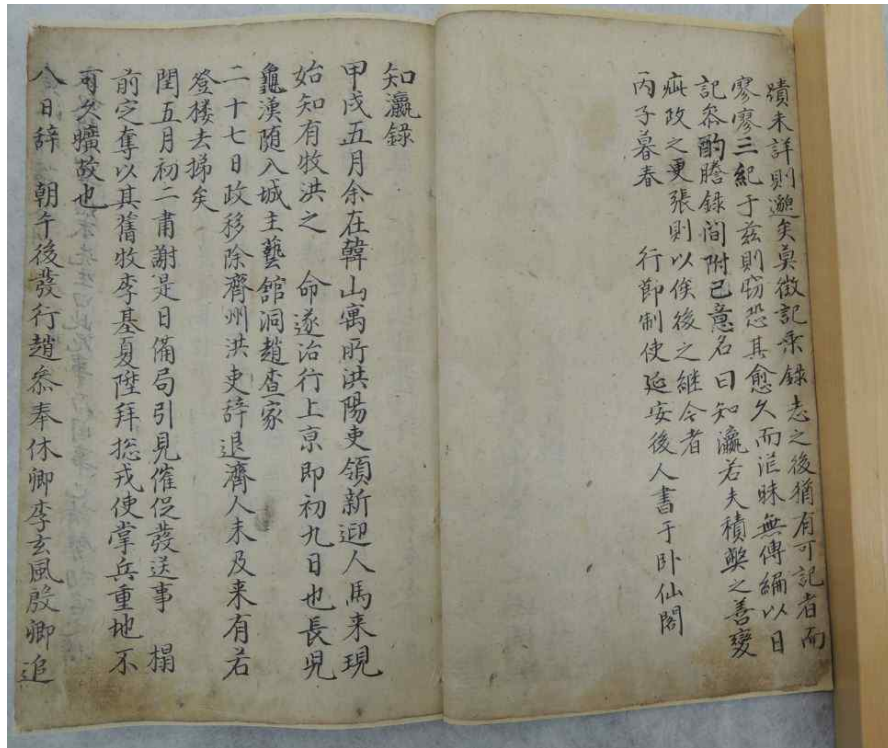 蹟未詳則邈矣莫徵記乘錄志之後猶有可記者而
寥寥三紀于兹則竊恐其愈久而泯昧無傳繙以日
記叅酌謄錄間附己意名曰知瀛若夫積弊之善變
疵政之更張則以俟後之継今者
丙子暮春 行節制使延安後人書于卧仙閣
知瀛錄
甲戌五月余在韓山寓所洪陽吏領新迎人馬来現
始知有牧洪之 命遂治行上京即初九日也長兒
龜漢随入城主藝舘洞趙査家
二十七日政移除濟州洪吏辞退濟人未及来有若
登楼去梯矣
閏五月初二肅謝是日備局引見催促發送事 榻
前定奪以其舊牧李基夏陞拜摠戎使掌兵重地不
可久曠故也
今日辞 朝午後發行趙叅奉休卿李玄風殷卿追